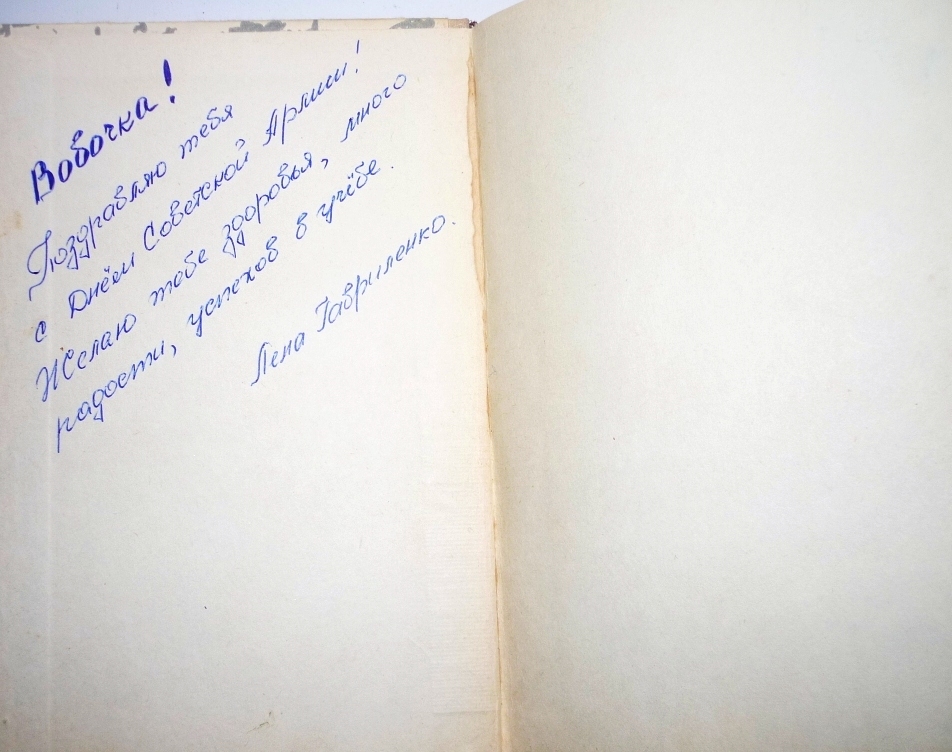 Вовочка!
Поздравляю тебя
с Днём Советской Армии!
Желаю тебе здоровья, много
радости, успехов в учёбе.
Лена Гавриленко.